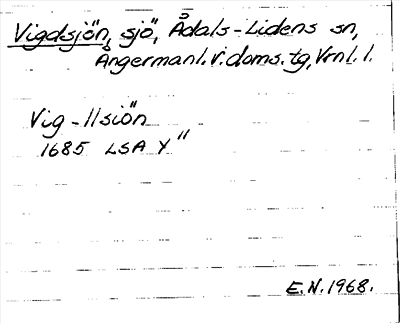 Vigdsjön, sjö, Ådals-Lidens sn,
Ångermanl. v. doms. tg, Vrnl. l.
Vig-llsiön
1685 LSA Y"
E.N. 1968.